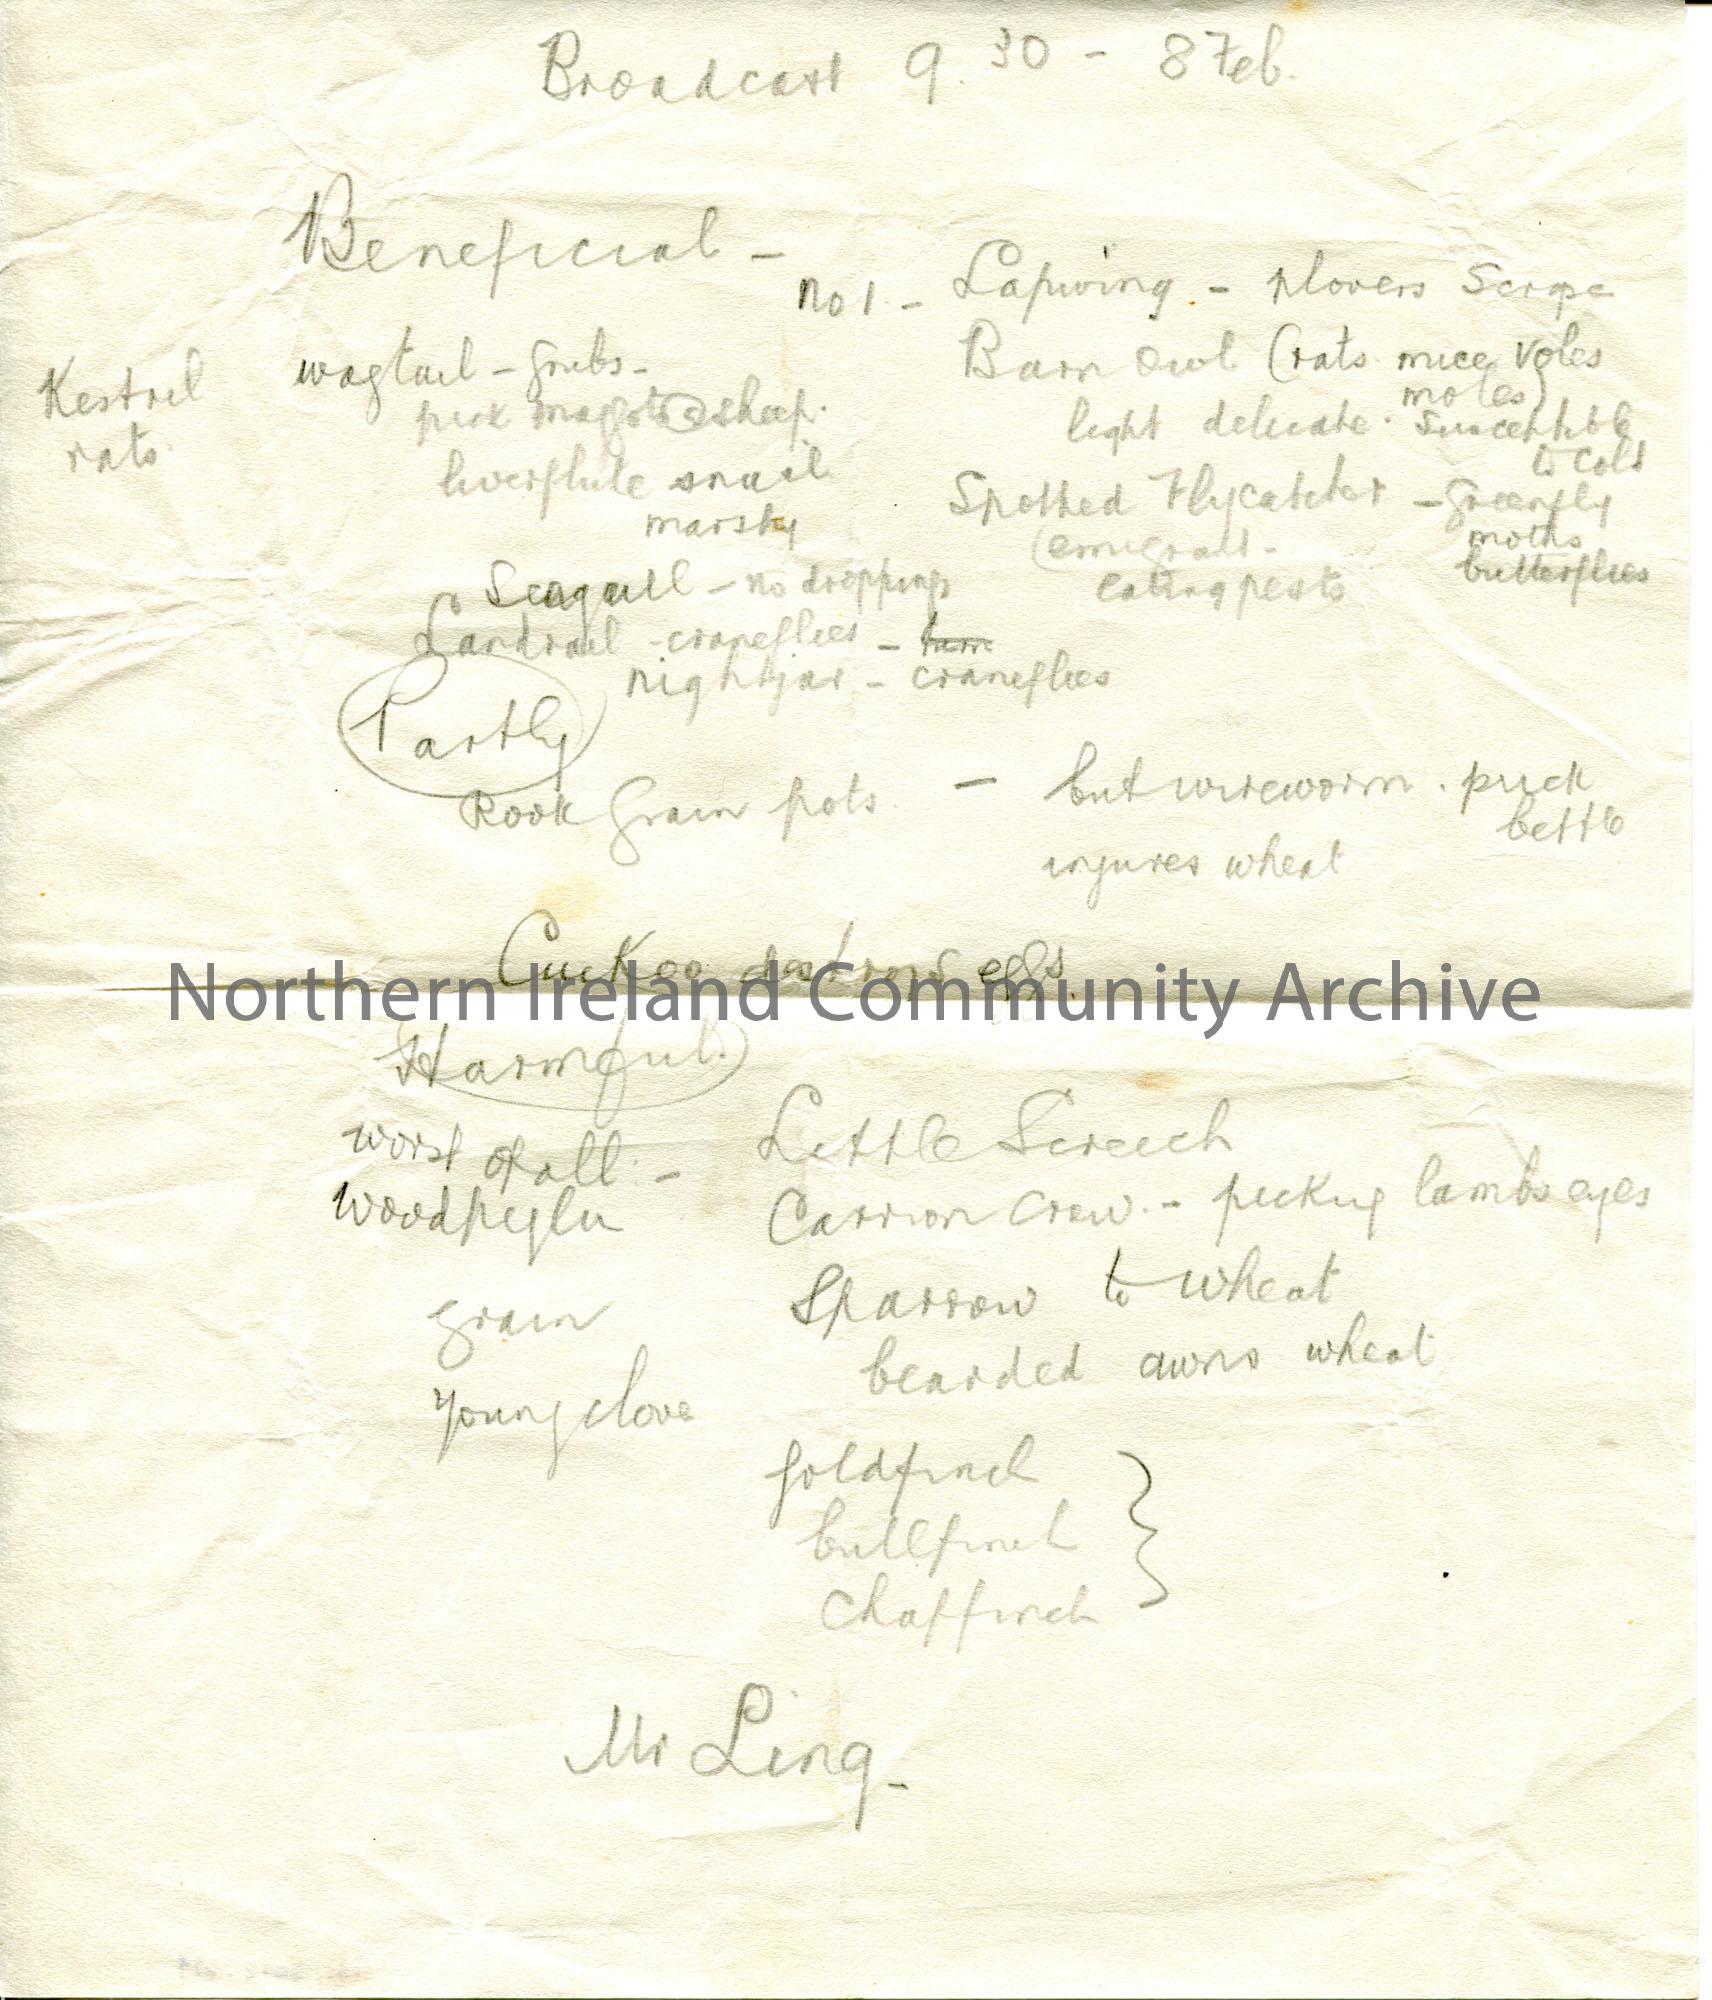 Broadcast 9.30 - 8 Feb.
Beneficial -
no 1 - Lapwing - plovers Scrape
Kestrel
rats
wagtail - grubs -
pick maggots sheep.
liverfluke snail
marshy
Barn Owl (rats mice voles
moles)
light delicate. Susceptible
to cold
Spotted Flycatcher - greenfly
moths
butterflies
(emigrant -
eating pests
Seagull - no droppings
Landrail - craneflies - farm
nightjar - craneflies
Partly
Rook Grain pots - but wireworm. pick
bettle
injures wheat
Cuckoo destroys eggs.
Northern Ireland Community Archive
Harmful.
worst of all: - Little Screech
Woodpigeon
Carrion Crow. - picking lambs eyes
grain
Sparrow to wheat
bearded awns wheat
Young clover
goldfinch
bullfinch
chaffinch
Mr Ling -